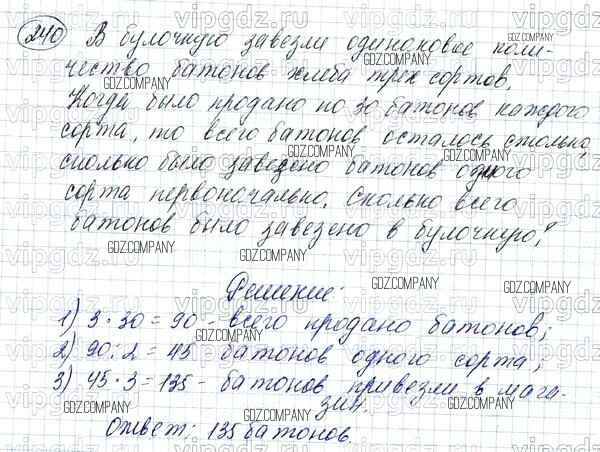 240 В булочную завезли одинаковое коли-
чество батонов хлеба трех сортов.
Когда было продано по 30 батонов каждого
сорта, то всего батонов осталось столько,
сколько было завезено батонов одного
сорта первоначально. Сколько всего
батонов было завезено в булочную?
Решение:
1) 3 · 30 = 90 - всего продано батонов;
2) 90 : 2 = 45 батонов одного сорта;
3) 45 · 3 = 135 - батонов привезли в мага-
зин.
Ответ: 135 батонов.
vipgdz.ru
GDZ.COMPANY